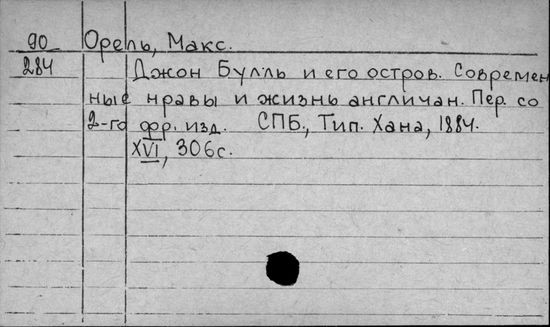 90 Орель, Макс.
284 Джон Булль и его остров. Современ
ные нравы и жизнь англичан. Пер. со
2-го фр. изд. СПБ., Тип. Хана, 1884.
XVI, 306с.